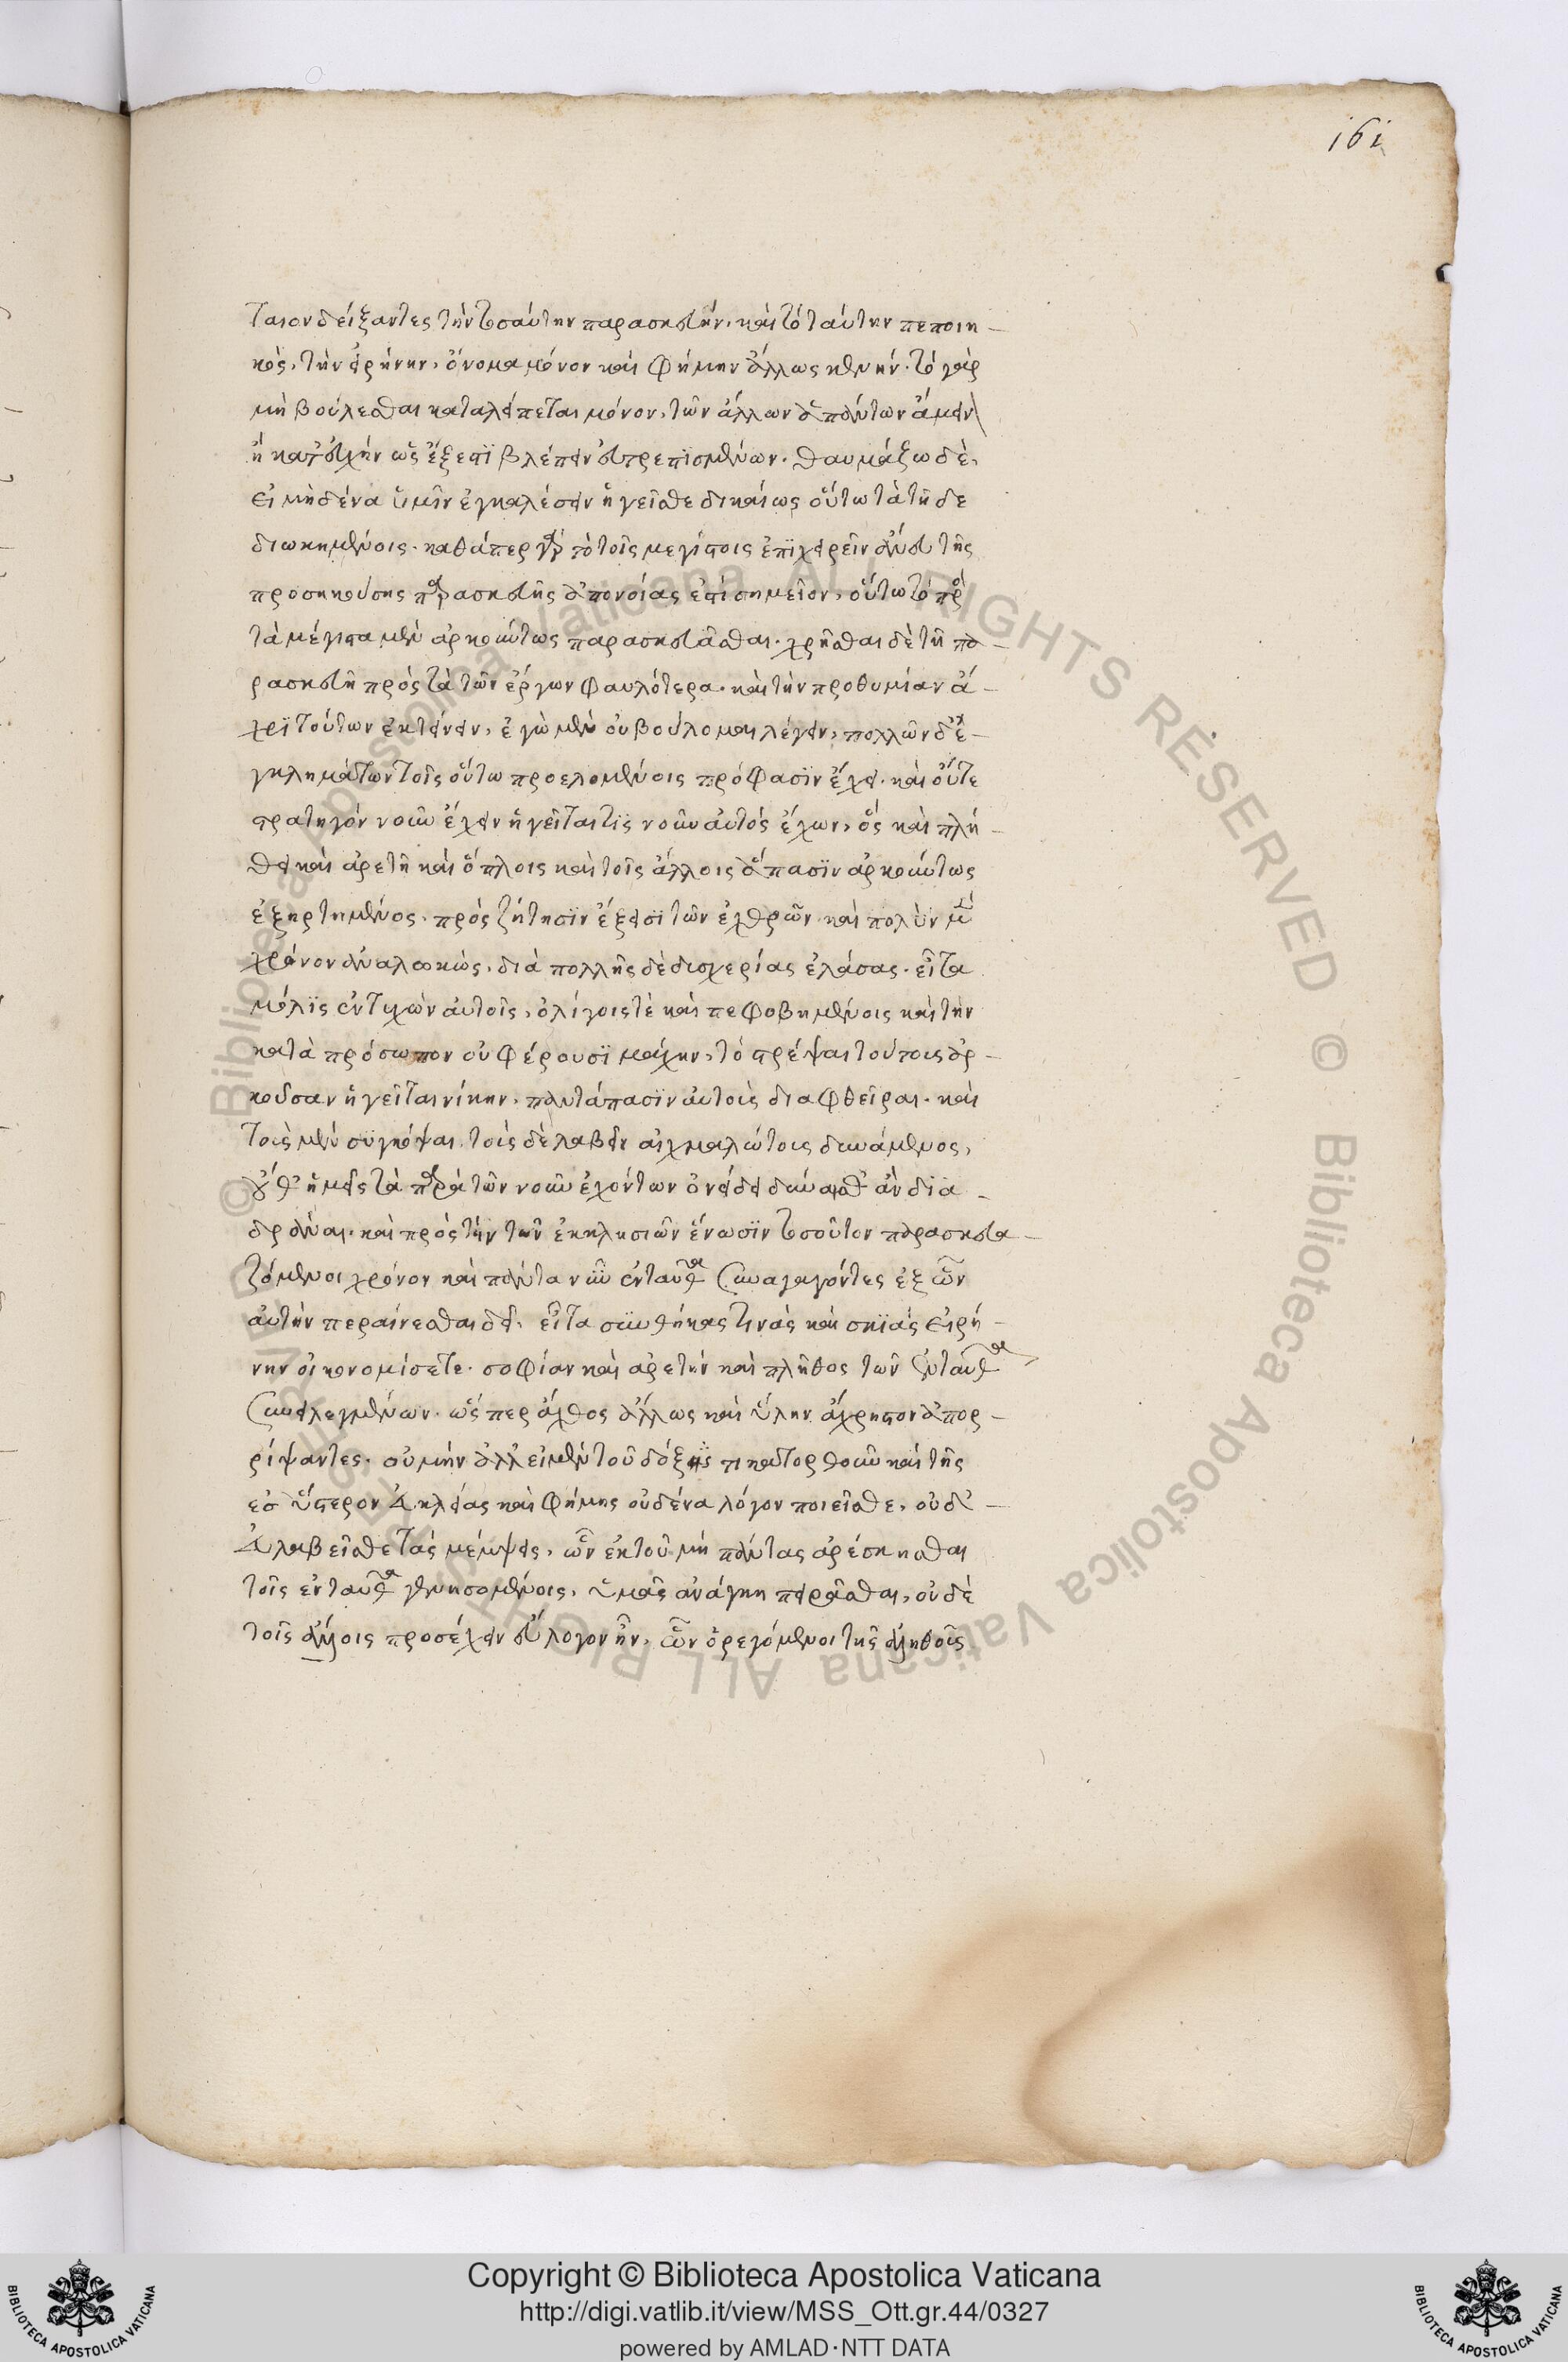 161
ταιον δείξαντες τὴν τοσαύτην παρασκευὴν, καὶ τὸ ταύτην πεποιη-
κὸς, τὴν εἰρήνην, ὄνομα μόνον καὶ φήμην ἄλλως κενήν. τὸ γὰρ
μὴ βούλεσθαι καταλείπεται μόνον, τῶν ἄλλων ἁπάντων ἀμείν
ἢ κατ' εὐχὴν ὡς ἔξεστι βλέπειν εὐτρεπισμένων. θαυμάζω δὲ,
εἰ μηδένα ὑμῖν ἐγκαλέσειν ἡγεῖσθε δικαίως οὕτω τὰ τῇδε
διωκημένοις. καθάπερ γὰρ τὸ τοῖς μεγίστοις ἐπιχειρεῖν ἄνευ τῆς
προσηκούσης παρασκευῆς ἀπονοίας ἐστὶ σημεῖον, οὕτω τὸ πρὸς
τὰ μέγιστα μὲν ἀρκούντως παρασκευᾶσθαι. χρῆσθαι δὲ τῇ πα-
ρασκευῇ πρὸς τὰ τῶν ἔργων φαυλότερα. καὶ τὴν προθυμίαν ἄ-
χρι τούτων ἐκτείνειν, ἐγὼ μὲν οὐ βούλομαι λέγειν, πολλῶν δ' ἐ-
γκλημάτων τοῖς οὕτω προελομένοις πρόφασιν ἔχει. καὶ οὔτε
στρατηγὸν νοῦν ἔχειν ἡγεῖται τὶς νοῦν αὐτὸς ἔχων, ὃς καὶ πλή-
θει καὶ ἀρετῇ καὶ ὅπλοις καὶ τοῖς ἄλλοις ἅπασιν ἀρκούντως
ἐξηρτημένος. πρὸς ζήτησιν ἔξεισι τῶν ἐχθρῶν καὶ πολὺν μὲν
χρόνον ἀναλωκὼς, διὰ πολλῆς δὲ δυσχερίας ἐλάσας. εἶτα
μόλις ἐντυχὼν αὐτοῖς, ὀλίγοις τὲ καὶ πεφοβημένοις καὶ τὴν
κατὰ πρόσωπον οὐ φέρουσι μάχην, τὸ τρέψαι τούτους ἀρ-
κοῦσαν ἡγεῖται νίκην, παντάπασιν αὐτοὺς διαφθεῖραι. καὶ
τοὺς μὲν συγκόψαι τοὺς δὲ λαβεῖν αἰχμαλώτους δυνάμενος,
οὔθ' ἡμεῖς τὰ παρὰ τῶν νοῦν ἐχόντων ὀνείδει δύναισθ' ἂν δια-
δράναι. καὶ πρὸς τὴν τῶν ἐκκλησιῶν ἕνωσιν τοσοῦτον παρασκευα-
ζόμενοι χρόνον καὶ πάντα νῦν ἐνταῦθα συναγαγόντες ἐξ ὧν
αὐτὴν περαίνεσθαι δεῖ. εἶτα συνθήκας τινὰς καὶ σκιὰς εἰρή-
νην οἰκονομίσετε. σοφίαν καὶ ἀρετὴν καὶ πλῆθος τῶν ἐνταῦθα
συνειλεγμένων. ὥσπερ ἄχθος ἄλλως καὶ ὕλην ἄχρηστον ἀπορ-
ρίψαντες. οὐ μὴν ἀλλ' εἰ μὲν τοῦ δόξης τι κατορθοῦν καὶ τῆς
ἐσ ὕστερον εὐκλείας καὶ φήμης οὐδένα λόγον ποιεῖσθε, οὐδ'
εὐλαβεῖσθε τὰς μέμψεις, ὧν ἐκ τοῦ μὴ πάντας ἀρέσκησθαι
τοῖς ἐνταῦθα γενησομένοις, ὑμᾶς ἀνάγκη πειρᾶσθαι, οὐδὲ
τοῖς ἄλλοις προσέχειν εὔλογον ἦν, ὧν ὀρεγόμενοι τῆς ἀληθοῦς
Copyright © Biblioteca Apostolica Vaticana
http://digi.vatlib.it/view/MSS_Ott.gr.44/0327
powered by AMLAD·NTT DATA
BIBLIOTECA APOSTOLICA VATICANA
BIBLIOTECA APOSTOLICA VATICANA
© Biblioteca Apostolica Vaticana ALL RIGHTS RESERVED © Biblioteca Apostolica Vaticana ALL RIGHTS RESERVED